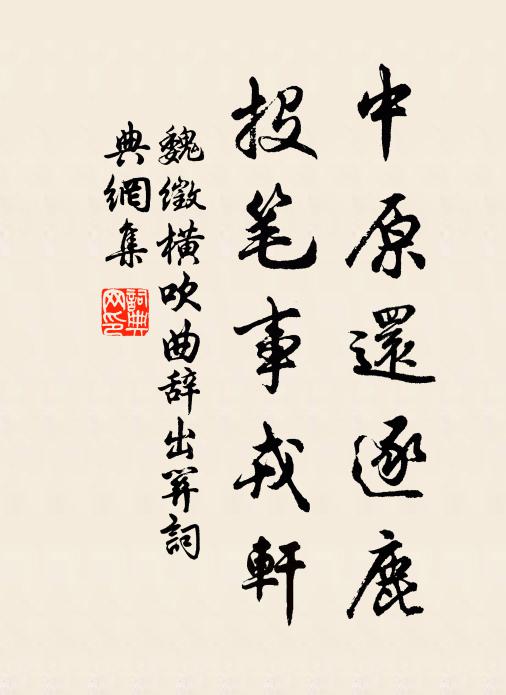 中原還逐鹿
投笔事戎軒
魏徵橫吹曲辞出関詞
典網集
詞典网印